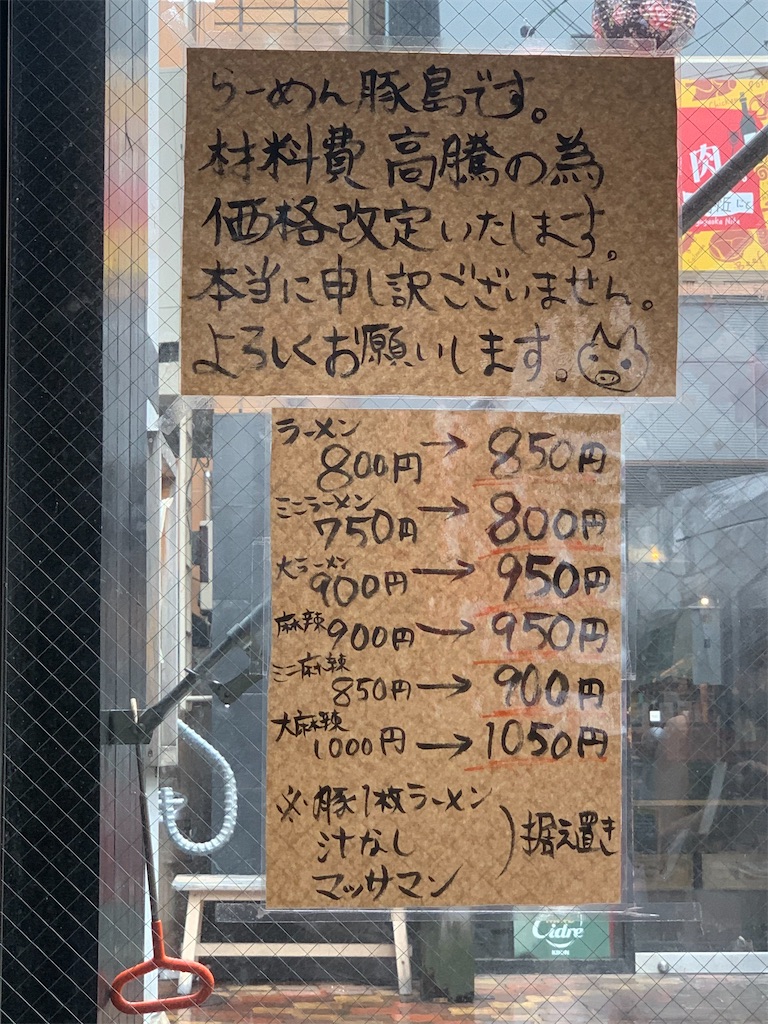 らーめん豚島です。
材料費 高騰の為
価格改定いたします。
本当に申し訳ございません。
よろしくお願いします。
ラーメン
800円 → 850円
ミニラーメン
750円 → 800円
大ラーメン
900円 → 950円
麻辣
900円 → 950円
ミニ麻辣
850円 → 900円
大麻辣
1000円 → 1050円
※豚1枚ラーメン
汁なし
マッサマン
) 据え置き
肉
Cidre
KIRIN